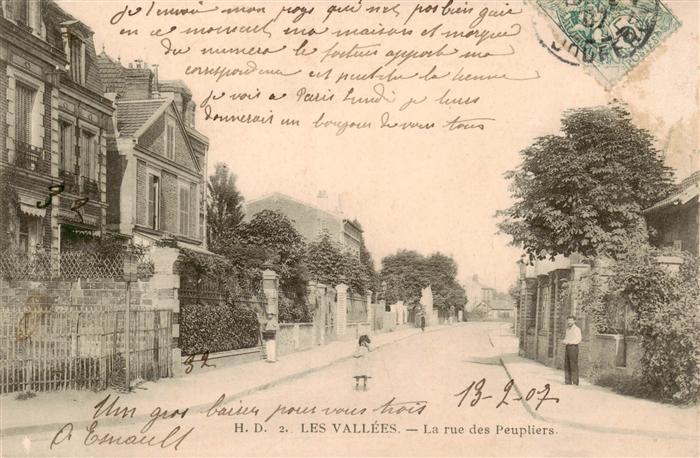 J'envoie mon pays qui n'est pas bien gaie
en ce moment ma maison est marqué
du numero le facteur apport ma
correspondance et peut-être la tienne
Je vais a Paris Lundi je leurs
donnerais un bonjour de vous tous
32
32
13-2-07
Un gros baiser pour vous trois
H. D. 2. LES VALLÉES. — La rue des Peupliers.